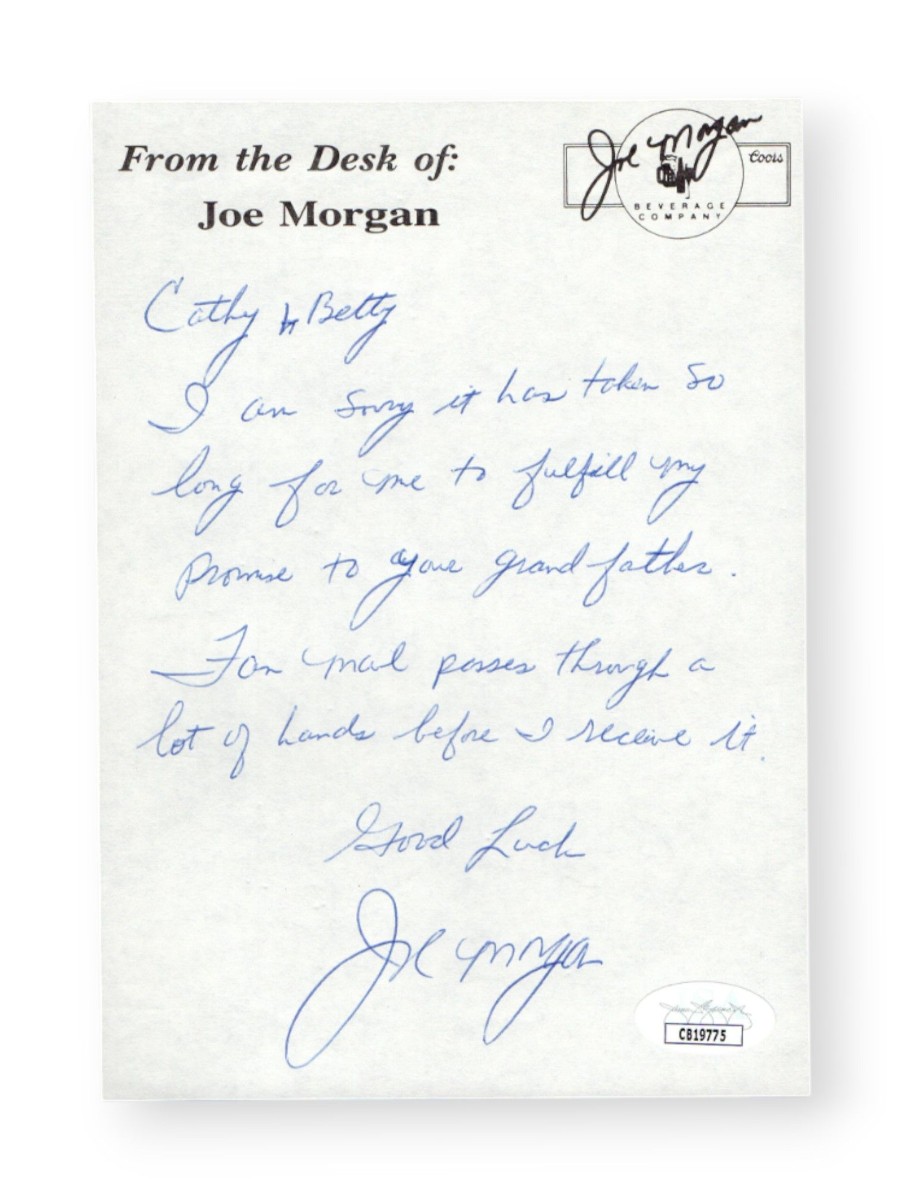 From the Desk of:
Joe Morgan
Joe Morgan
Coors
BEVERAGE
COMPANY
Cathy & Betty
I am sorry it has taken so
long for me to fulfill my
promise to your grandfather.
Fan mail passes through a
lot of hands before I receive it.
Good Luck
Joe Morgan
CB19775